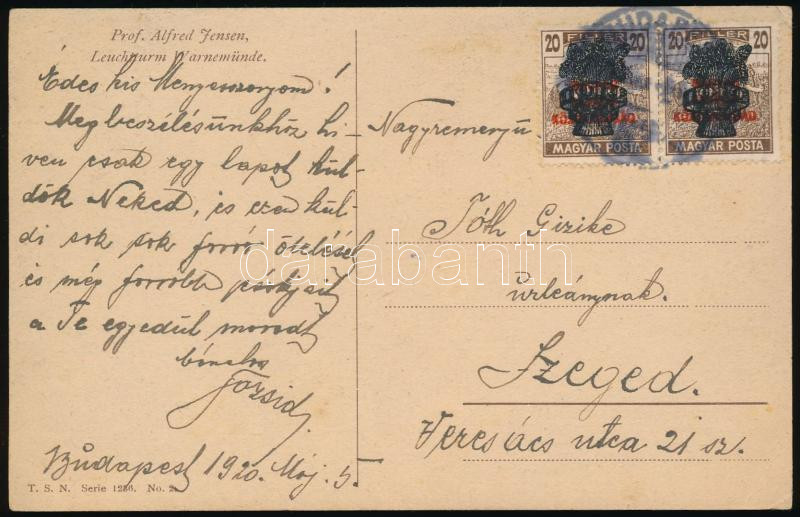 Prof. Alfred Jensen,
Leuchtturm Warnemünde.
Édes kis Menyasszonyom!
Megbeszélésünkhöz hi-
ven csak egy lapot kül-
dök Neked, is ezen kül-
di sok sok forró ölelését
és még forróbb csókjait
a Te egyedül
Józsid.
Budapest 1920. Máj. 5.
T. S. N. Serie 1286. No. 2.
20 FILLER 20
MAGYAR POSTA
20 FILLER 20
MAGYAR POSTA
Nagyreményü
Tóth Gizike
úrleánynak.
Szeged.
Vercsács utca 21 sz.
darabanth